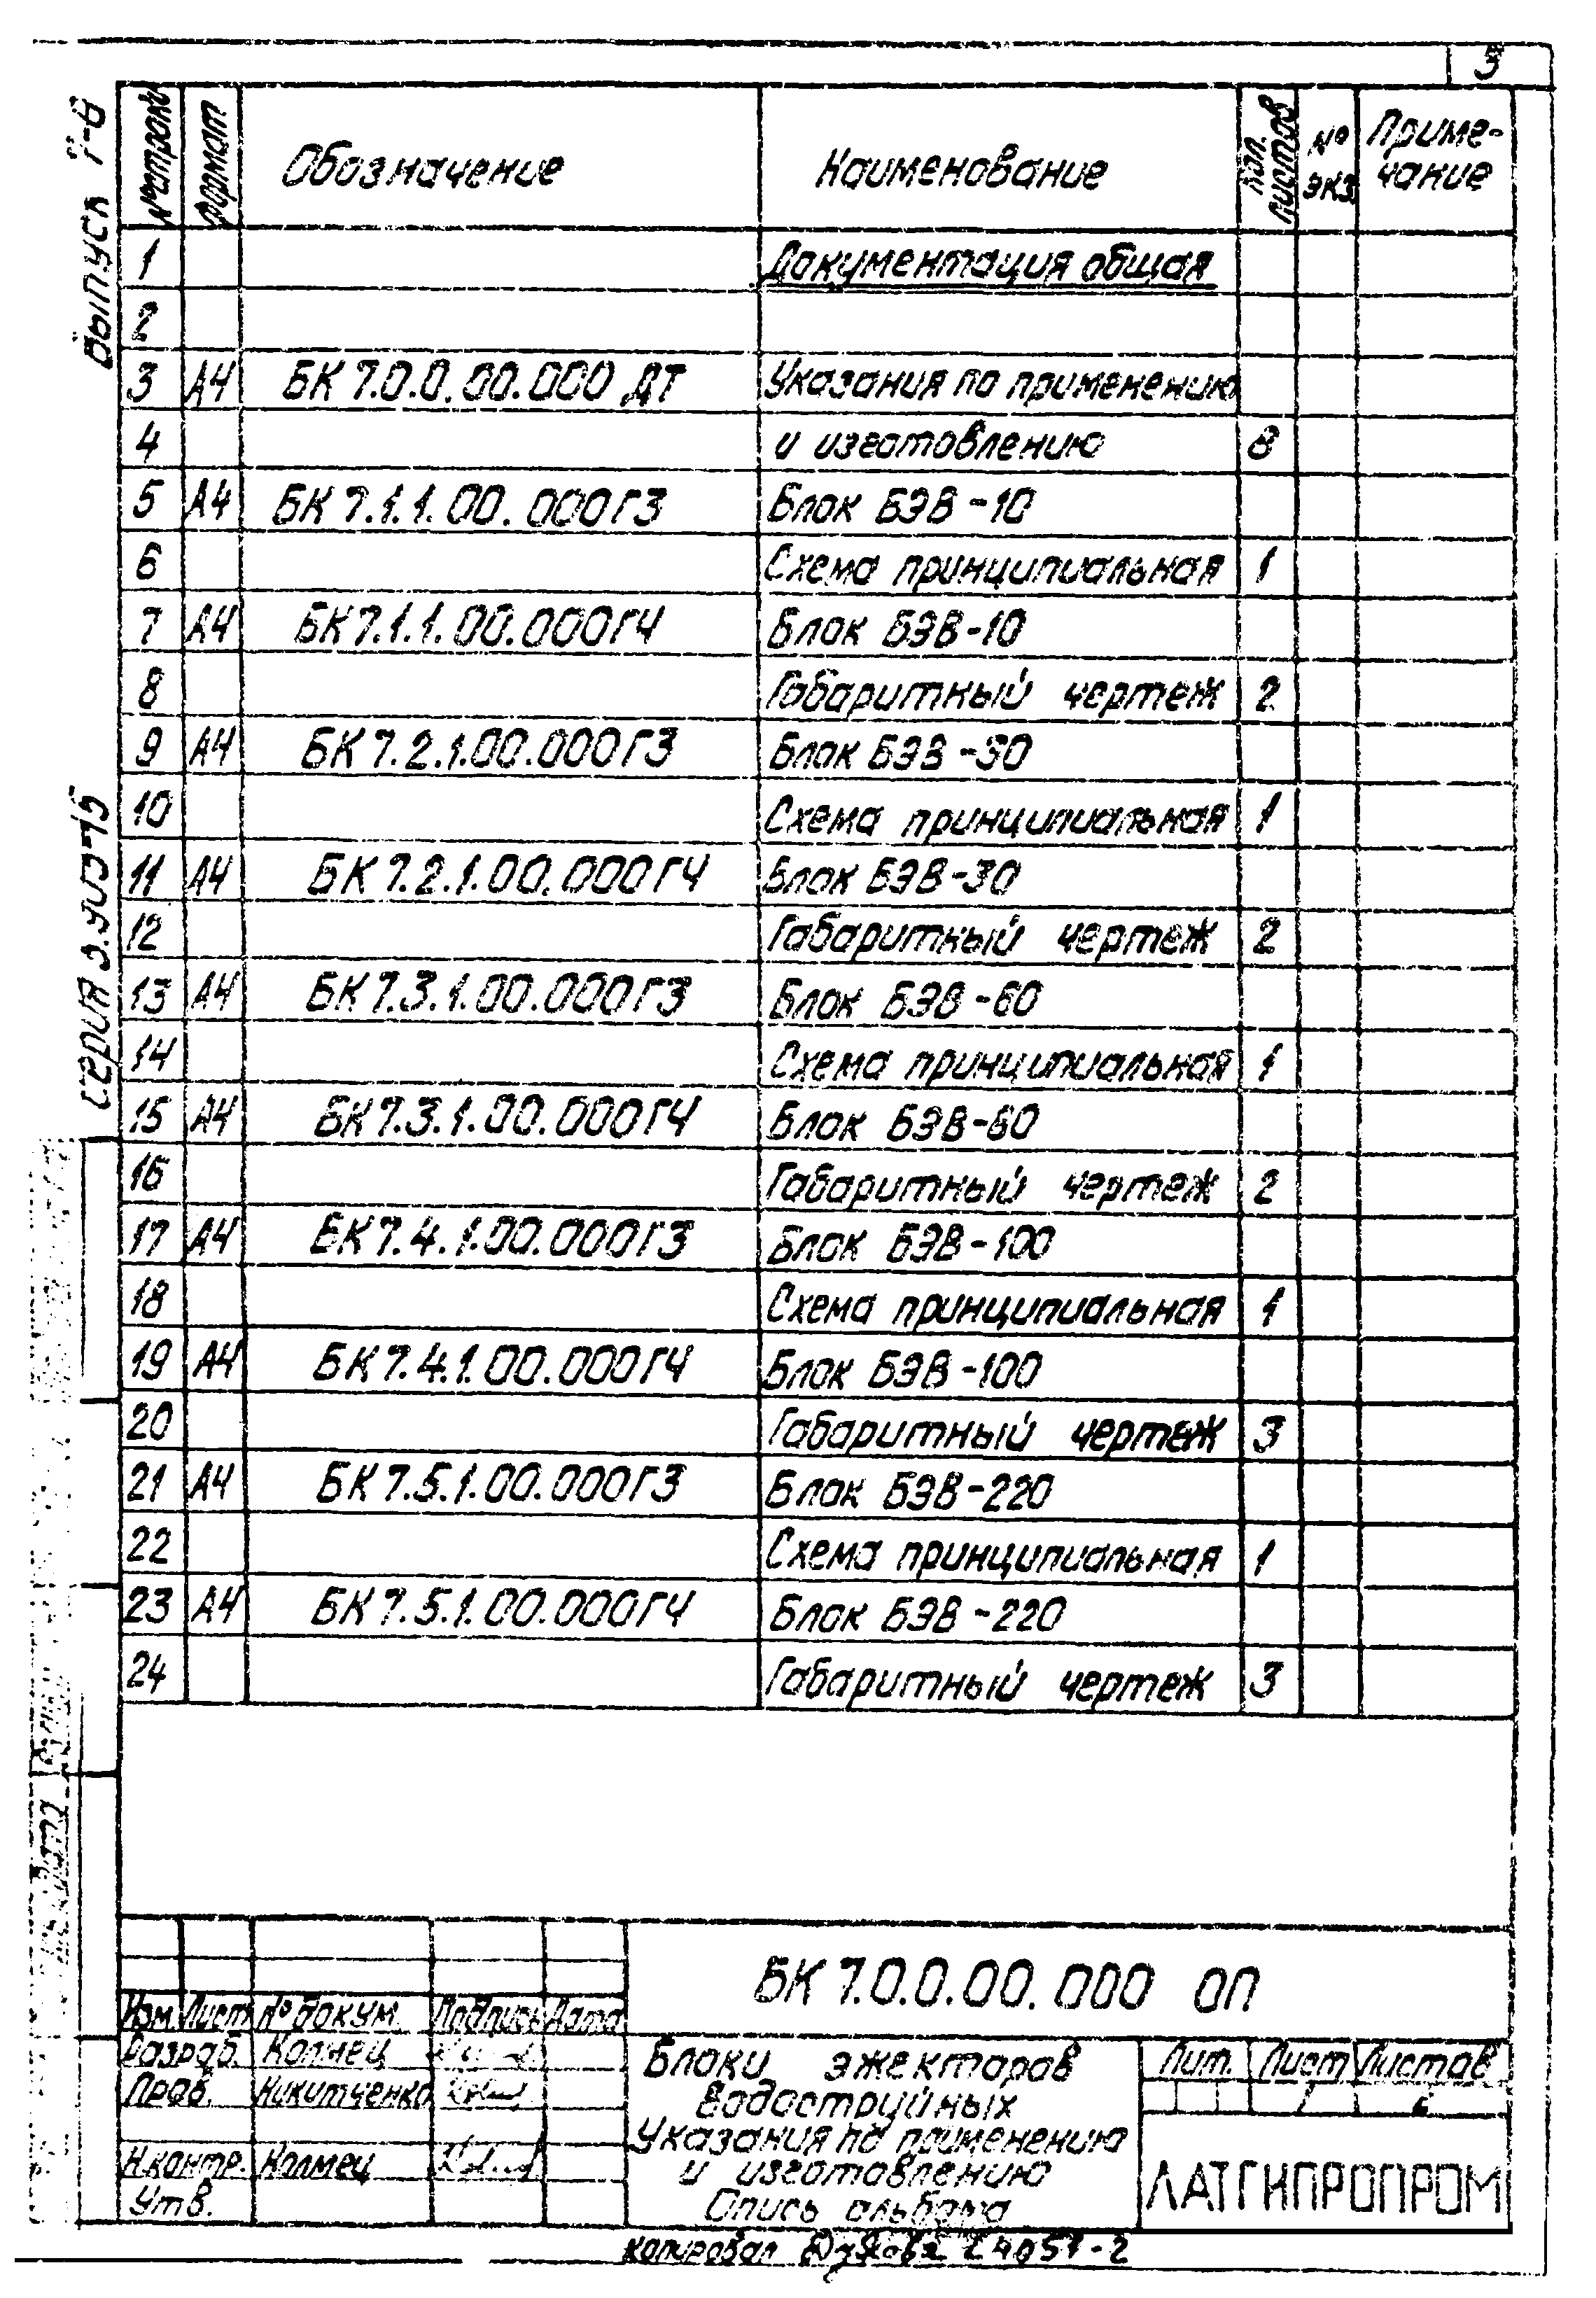 3
Выпуск 7-0
№ строки Формат Обозначение Наименование Кол. листов № экз. Приме-
чание
1 Документация общая
2
3 А4 БК 7.0.0.00.000 ДТ Указания по применению
4 и изготовлению 8
5 А4 БК 7.1.1.00.000Г3 Блок БЭВ-10
6 Схема принципиальная 1
7 А4 БК 7.1.1.00.000ГЧ Блок БЭВ-10
8 Габаритный чертеж 2
9 А4 БК 7.2.1.00.000Г3 Блок БЭВ-30
10 Схема принципиальная 1
11 А4 БК 7.2.1.00.000ГЧ Блок БЭВ-30
12 Габаритный чертеж 2
13 А4 БК 7.3.1.00.000Г3 Блок БЭВ-60
14 Схема принципиальная 1
15 А4 БК 7.3.1.00.000ГЧ Блок БЭВ-60
16 Габаритный чертеж 2
17 А4 БК 7.4.1.00.000Г3 Блок БЭВ-100
18 Схема принципиальная 1
19 А4 БК 7.4.1.00.000ГЧ Блок БЭВ-100
20 Габаритный чертеж 3
21 А4 БК 7.5.1.00.000Г3 Блок БЭВ-220
22 Схема принципиальная 1
23 А4 БК 7.5.1.00.000ГЧ Блок БЭВ-220
24 Габаритный чертеж 3
серия
БК 7.0.0.00.000 ОП
Изм. Лист № докум. Подпись Дата
Разраб. Колмец
Пров. Никитченко
Н.контр. Колмец
Утв.
Блоки эжекторов
водоструйных
Указания по применению
и изготовлению
Опись альбома
Лит. Лист Листов
1
ЛАТГИПРОПРОМ
копировал 24057-2